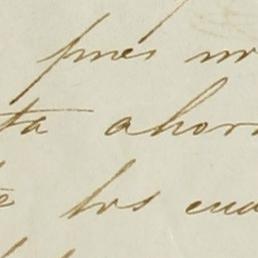 pues
ta ahor
los cua